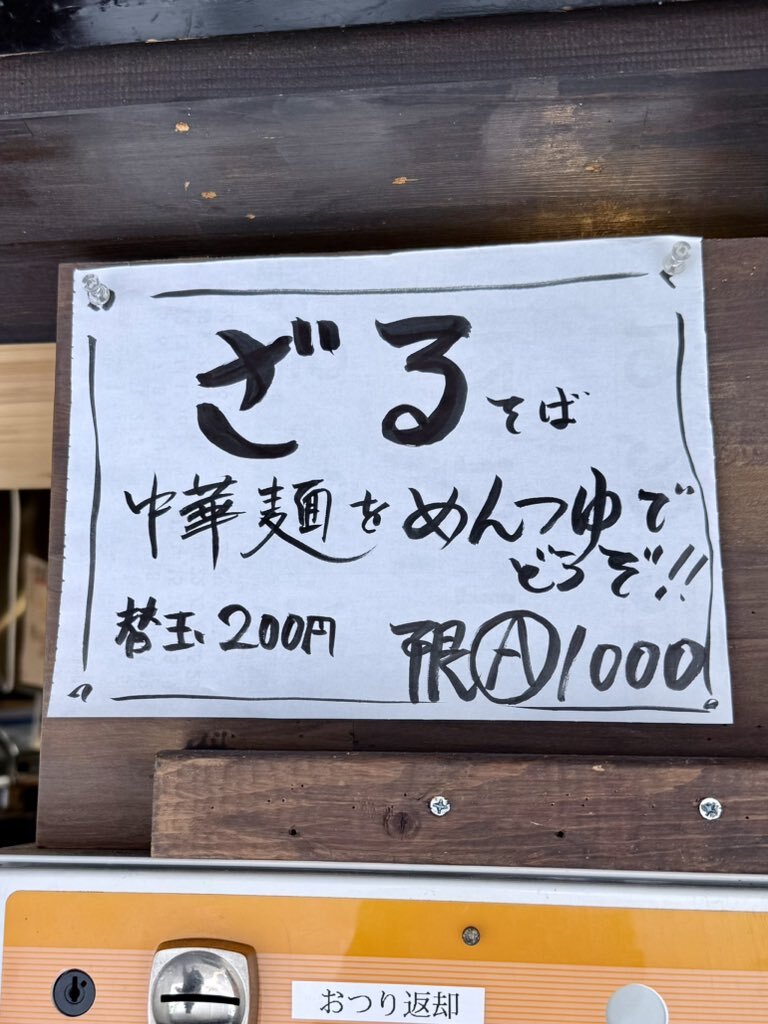 ざるそば
中華麺をめんつゆで
どうぞ!!
替玉 200円
限Ⓐ1000
おつり返却